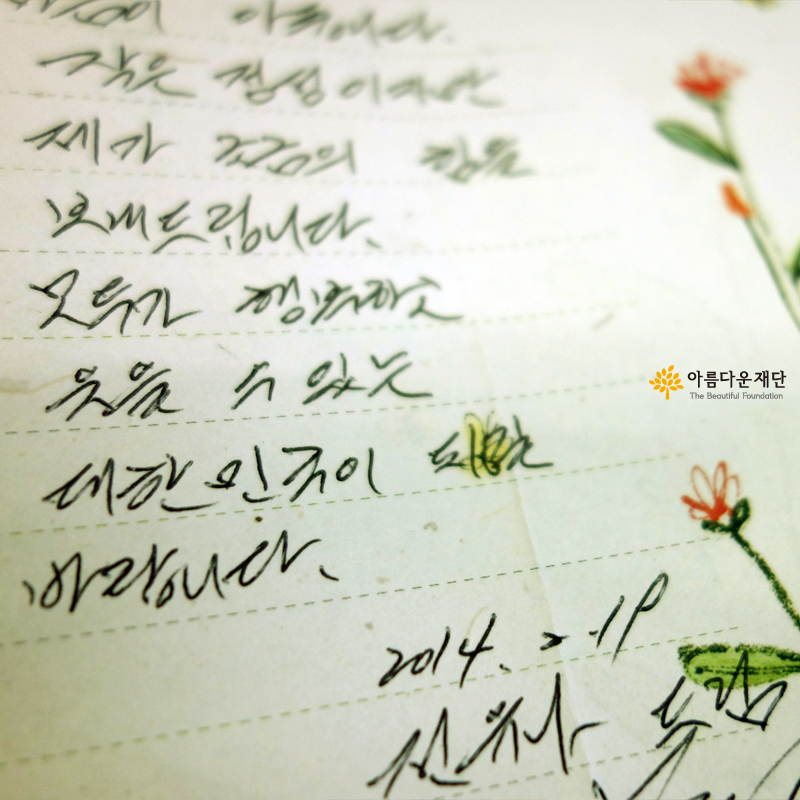 작은 정성이지만
제가 조금의 힘을
보내드립니다.
모두가 행복하고
웃을 수 있는
대한민국이 되길
바랍니다.
아름다운재단
The Beautiful Foundation
2014. 2. 19
드림